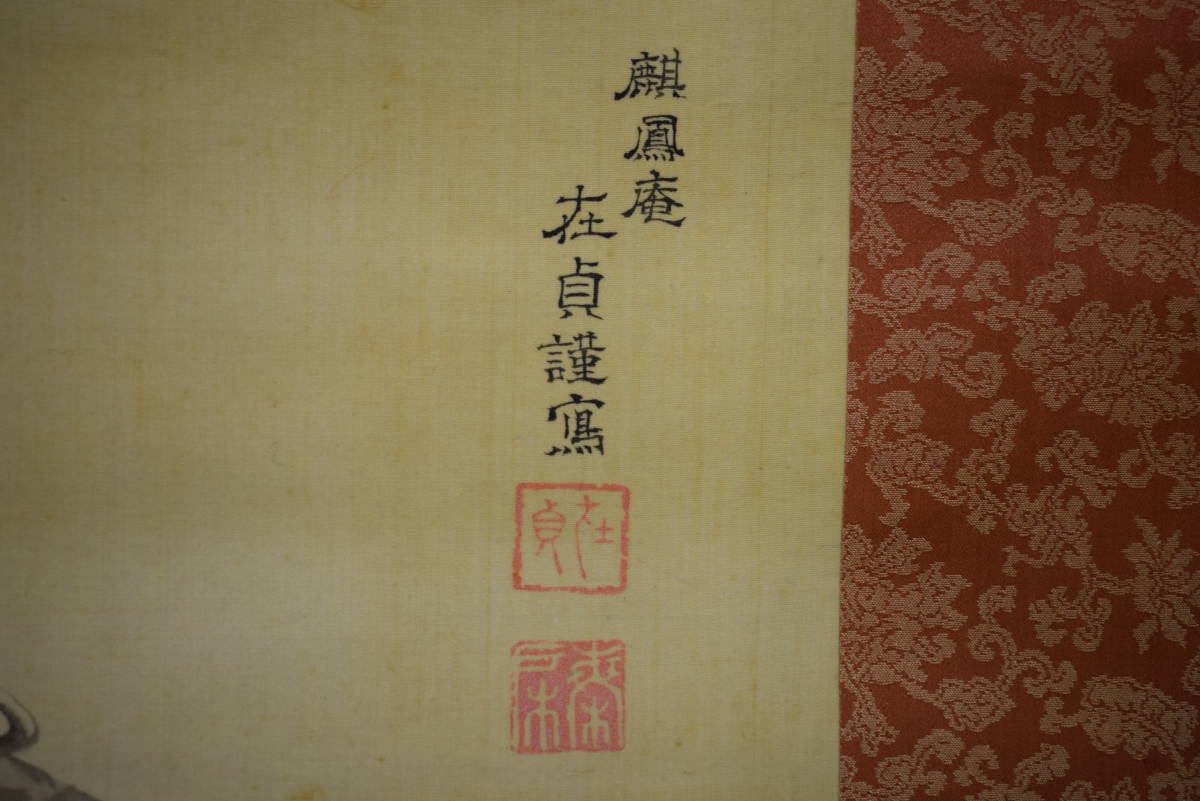 麒鳳庵
在貞謹寫
在貞